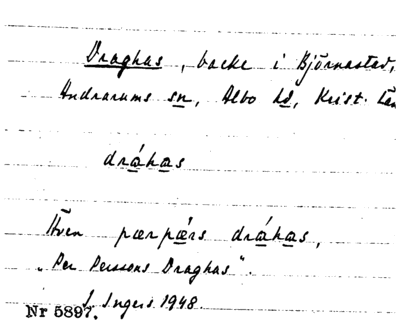 Draghas, backe i Björnastad,
Andrarums sn, Albo hd, Krist. län
dráhas
Även pærpærs dráhas,
„Per Perssons Draghas".
I. Ingers 1948.
Nr 5897.